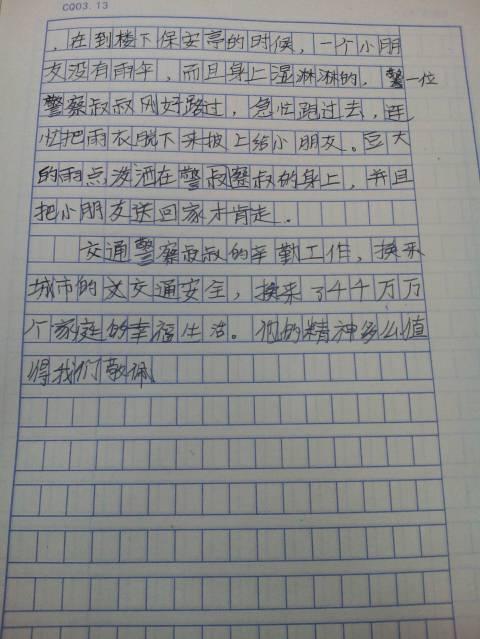 CQ03.13
，在到楼下保安亭的时候，一个小朋
友没有雨伞，而且身上湿淋淋的，一位
警察叔叔刚好路过，急忙跑过去，连
忙把雨衣脱下来披上给小朋友。豆大
的雨点泼洒在警叔察叔的身上，并且
把小朋友送回家才肯走。
交通警察叔叔的辛勤工作，换来
城市的交通安全，换来了千千万万
个家庭的幸福生活。他的精神多么值
得我们敬佩